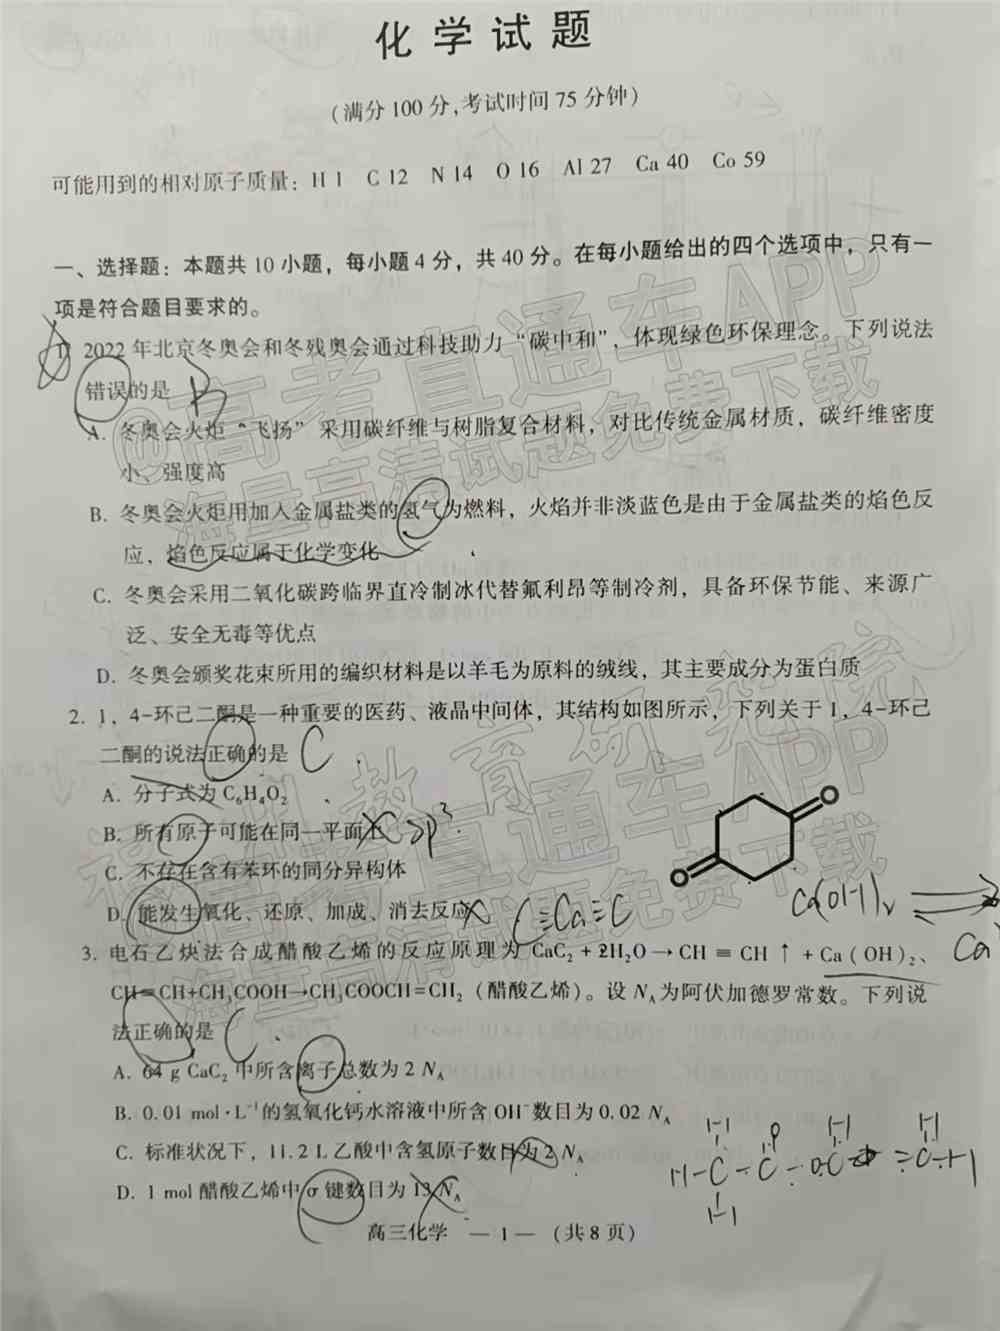 化学试题
(满分100分,考试时间75分钟)
可能用到的相对原子质量: H 1 C 12 N 14 O 16 Al 27 Ca 40 Co 59
一、选择题：本题共10小题，每小题4分，共40分。在每小题给出的四个选项中，只有一
项是符合题目要求的。
1. 2022年北京冬奥会和冬残奥会通过科技助力“碳中和”，体现绿色环保理念。下列说法
错误的是 B
A. 冬奥会火炬“飞扬”采用碳纤维与树脂复合材料，对比传统金属材质，碳纤维密度
小、强度高
B. 冬奥会火炬用加入金属盐类的氢气为燃料，火焰并非淡蓝色是由于金属盐类的焰色反
应，焰色反应属于化学变化
C. 冬奥会采用二氧化碳跨临界直冷制冰代替氟利昂等制冷剂，具备环保节能、来源广
泛、安全无毒等优点
D. 冬奥会颁奖花束所用的编织材料是以羊毛为原料的绒线，其主要成分为蛋白质
2. 1，4-环己二酮是一种重要的医药、液晶中间体，其结构如图所示，下列关于1，4-环己
二酮的说法正确的是 C
A. 分子式为C₆H₄O₂
B. 所有原子可能在同一平面上 × sp³
C. 不存在含有苯环的同分异构体
D. 能发生氧化、还原、加成、消去反应 ×
O
O
C≡Ca≡C
Ca(OH)₂
Ca
3. 电石乙炔法合成醋酸乙烯的反应原理为CaC₂+2H₂O→CH≡CH↑+Ca(OH)₂、
CH≡CH+CH₃COOH→CH₃COOCH=CH₂(醋酸乙烯)。设N_A为阿伏加德罗常数。下列说
法正确的是 C
A. 64 g CaC₂中所含离子总数为2 N_A
B. 0.01 mol·L⁻¹的氢氧化钙水溶液中所含OH⁻数目为0.02 N_A
C. 标准状况下，11.2 L乙酸中含氢原子数目为2 N_A
D. 1 mol醋酸乙烯中σ键数目为13 N_A
高三化学 — 1 — (共8页)
@高考直通车APP
海量高清试题免费下载
教育研究院
高考直通车APP
海量高清试题免费下载